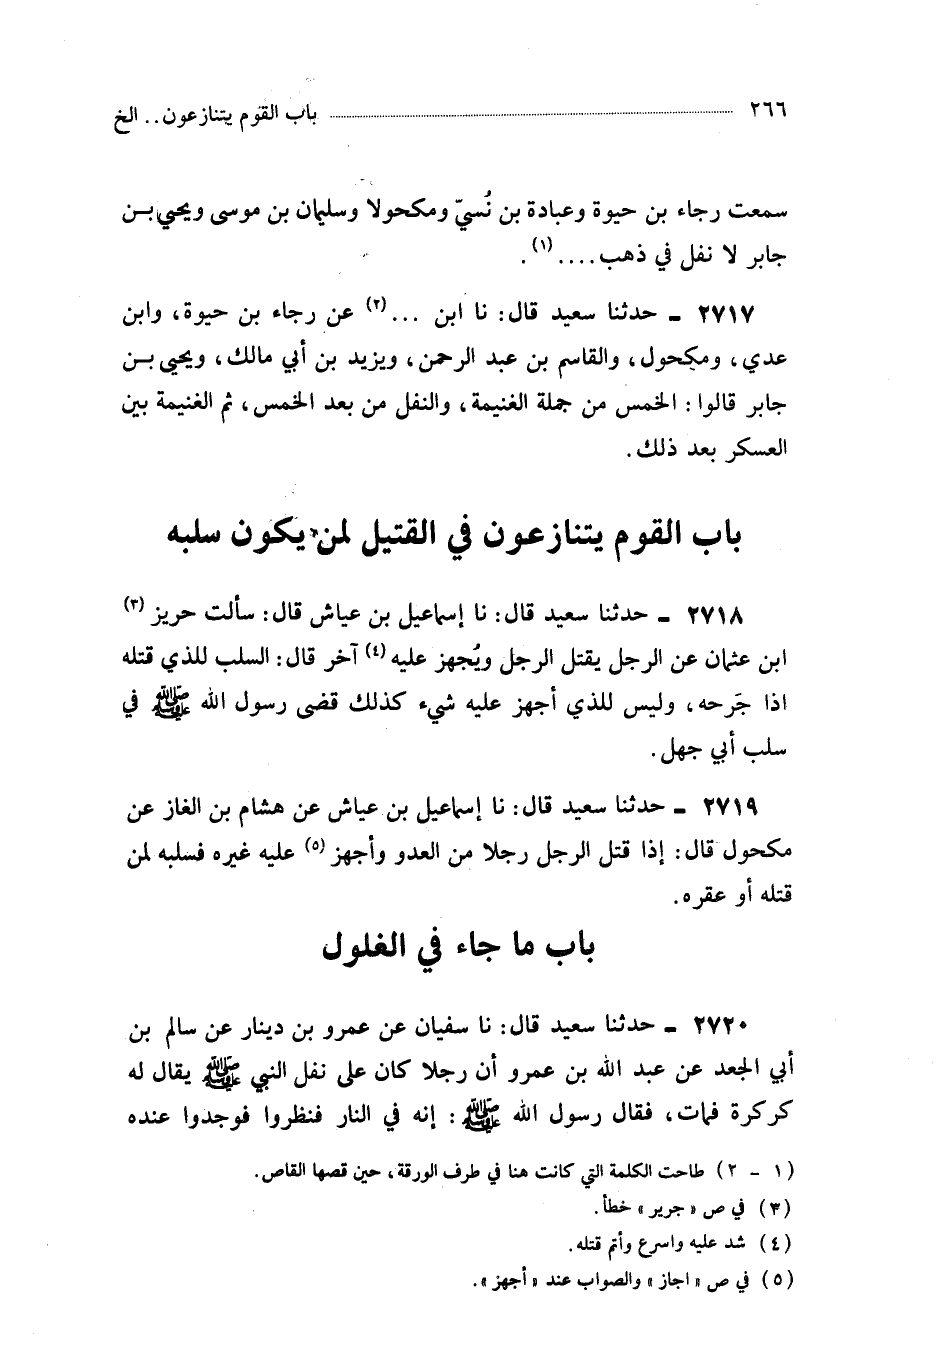 ٢٦٦ باب القوم يتنازعون.. الخ
سمعت رجاء بن حيوة وعبادة بن نُسيّ ومكحولا وسليمان بن موسى ويحيى بن
جابر لا نفل في ذهب....(١).
٢٧١٧ ـ حدثنا سعيد قال: نا ابن ...(٢) عن رجاء بن حيوة، وابن
عدي، ومكحول، والقاسم بن عبد الرحمن، ويزيد بن أبي مالك، ويحيى بن
جابر قالوا: الخمس من جملة الغنيمة، والنفل من بعد الخمس، ثم الغنيمة بين
العسكر بعد ذلك.
باب القوم يتنازعون في القتيل لمن يكون سلبه
٢٧١٨ ـ حدثنا سعيد قال: نا إسماعيل بن عياش قال: سألت حريز (٣)
ابن عثمان عن الرجل يقتل الرجل ويُجهز عليه(٤) آخر قال: السلب للذي قتله
اذا جَرحه، وليس للذي أجهز عليه شيء كذلك قضى رسول الله ﷺ في
سلب أبي جهل.
٢٧١٩ ـ حدثنا سعيد قال: نا إسماعيل بن عياش عن هشام بن الغاز عن
مكحول قال: إذا قتل الرجل رجلا من العدو وأجهز (٥) عليه غيره فسلبه لمن
قتله أو عقره.
باب ما جاء في الغلول
٢٧٢٠ ـ حدثنا سعيد قال: نا سفيان عن عمرو بن دينار عن سالم بن
أبي الجعد عن عبد الله بن عمرو أن رجلا كان على نفل النبي ﷺ يقال له
كركرة فمات، فقال رسول الله ﷺ: إنه في النار فنظروا فوجدوا عنده
(١ - ٢) طاحت الكلمة التي كانت هنا في طرف الورقة، حين قصها القاص.
(٣) في ص «جرير» خطأ.
(٤) شد عليه واسرع وأتم قتله.
(٥) في ص «اجاز» والصواب عند «أجهز».